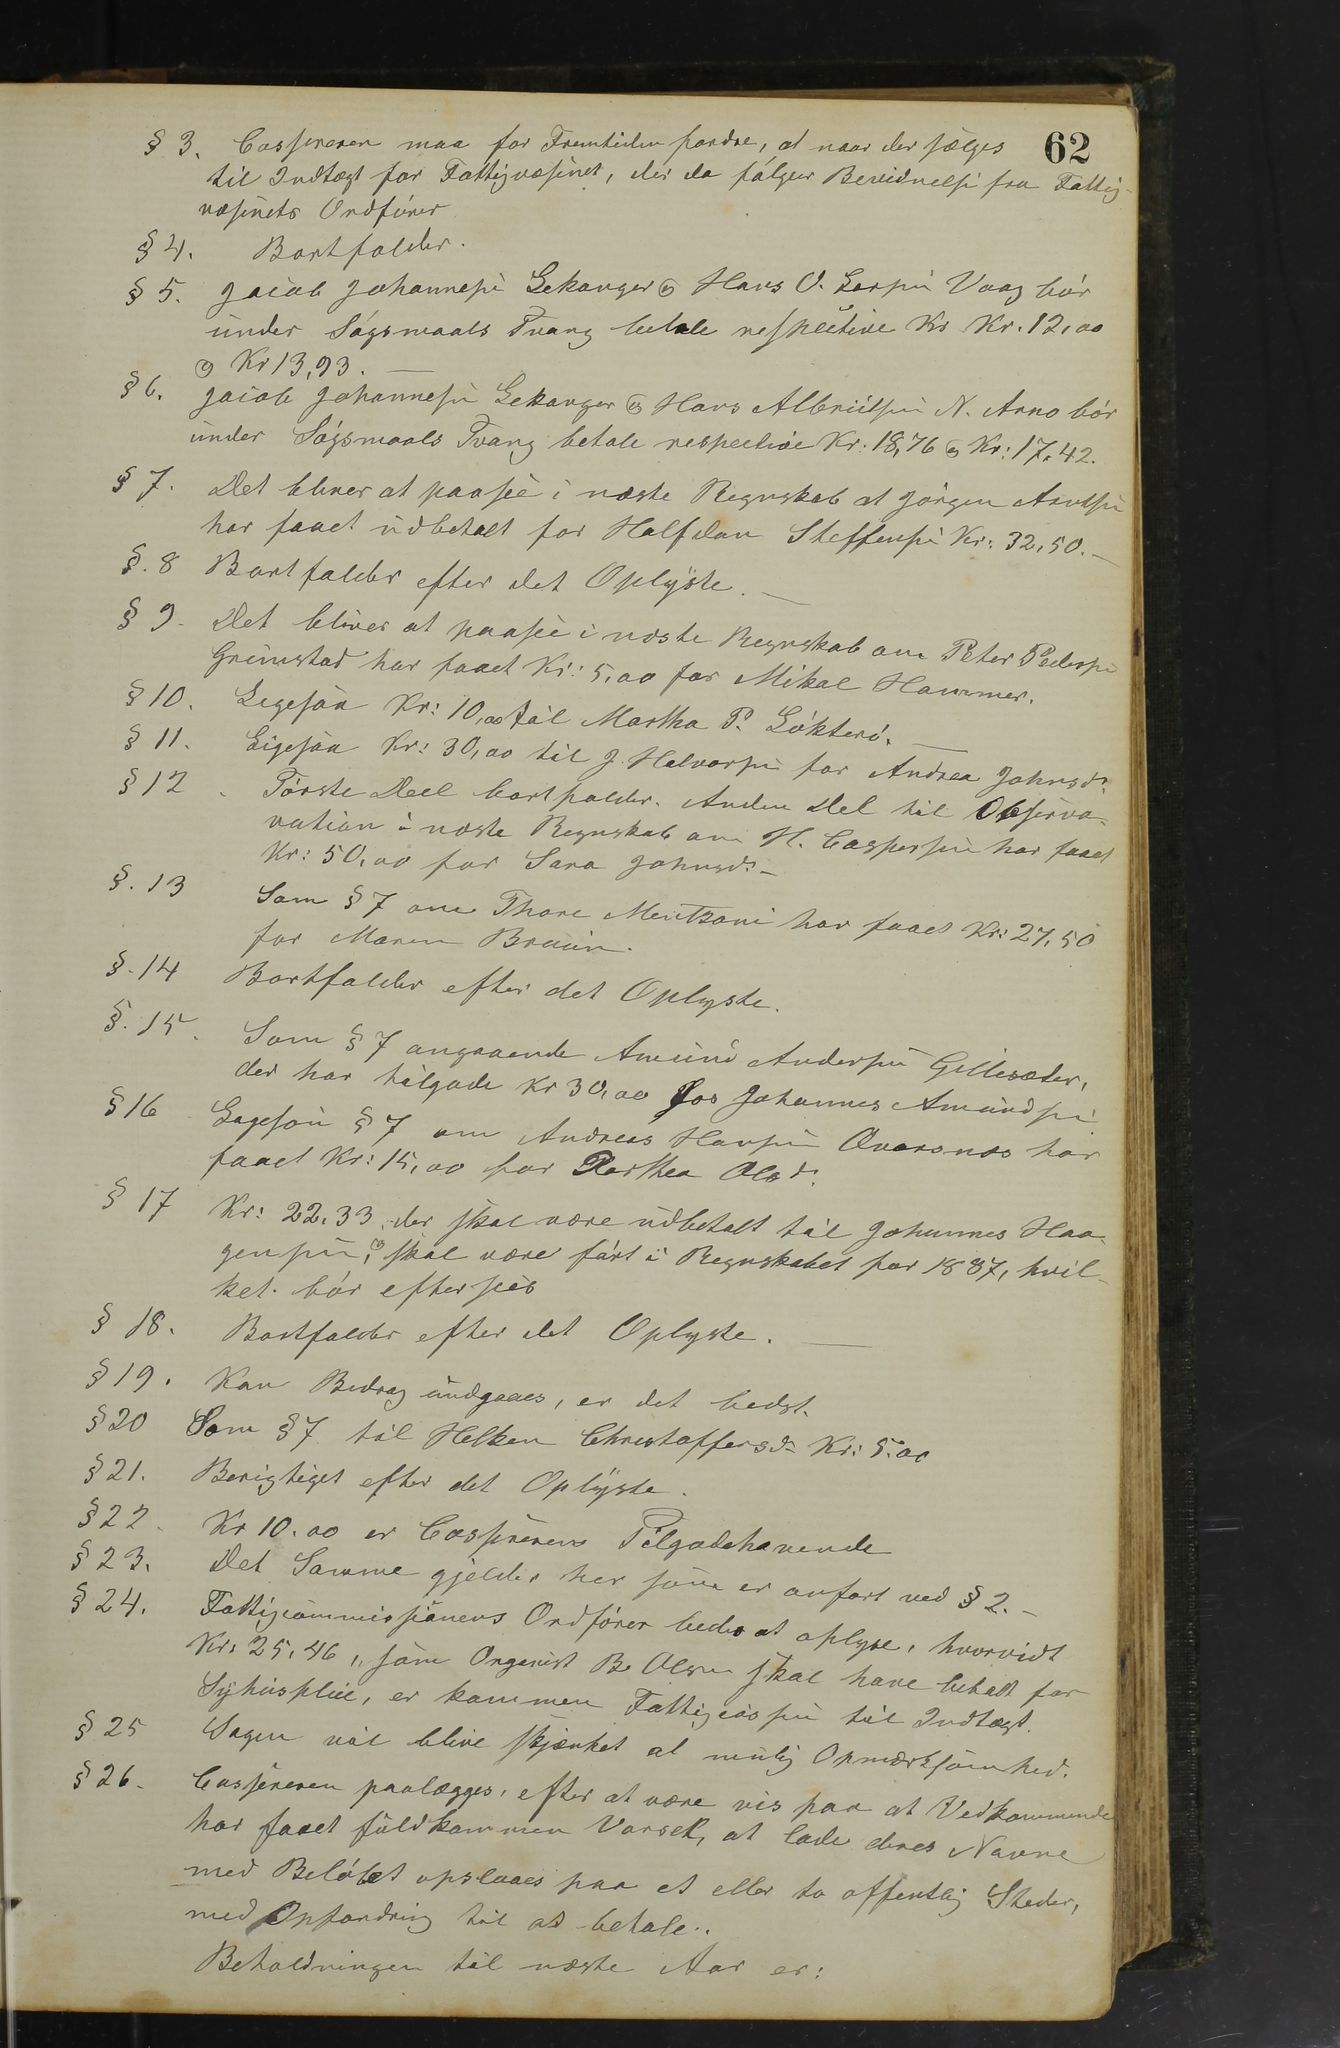 62
§ 3. Cassereren maa for Fremtiden fordre, at naar der sælges
til Indtægt for Fattigvæsenet, der da følger Bevidnelse fra Fattig-
væsenets Ordfører
§ 4. Bortfalder.
§ 5. Jacob Johannesen Lekanger og Hans O. Larsen Vaag bør
under Søgsmaals Tvang betale respective Kr Kr. 12,00
og Kr 13,93. —
§ 6. Jacob Johannesen Lekanger og Hans Albrigtsen N. Arno bør
under Søgsmaals Tvang betale respective Kr: 18,76 og Kr: 17,42.
§ 7. Det bliver at paasee i næste Regnskab at Jørgen Arntsen
har faaet udbetalt for Halfdan Steffensen Kr: 32,50. —
§. 8 Bortfalder efter det Oplyste. —
§ 9. Det bliver at paasee i næste Regnskab om Peter Pedersen
Grimstad har faaet Kr: 5,00 for Mikal Hammer.
§ 10. Ligesaa Kr: 10,00 til Martha P. Løkterø. —
§ 11. Ligesaa Kr: 30,00 til J. Halvorsen for Andrea Johnsdr.
§ 12. Første Deel bortfalder. Anden Del til Observa-
vation i næste Regnskab om H. Caspersen har faaet
Kr: 50,00 for Sara Johnsdr. —
§. 13 Som § 7 om Thore Mentzoni har faaet Kr: 27,50
for Maren Bruun.
§. 14 Bortfalder efter det Oplyste.
§. 15. Som § 7 angaaende Amund Andersen Gillesæter,
der har tilgode Kr 30,00 for Johannes Amundsen
§ 16 Ligesom § 7 om Andreas Hansen Qvarsnæs har
faaet Kr: 15,00 for Dorthea Olsdr.
§ 17 Kr: 22,33, der skal være udbetalt til Johannes Haa-
gensen, og skal være ført i Regnskabet for 1887, hvil-
ket bør eftersees
§ 18. Bortfalder efter det Oplyste. —
§ 19. Kan Bidrag undgaaes, er det bedst.
§ 20 Som § 7 til Helken Christoffersdr. Kr: 5.00
§ 21. Berigtiget efter det Oplyste.
§ 22. Kr 10.00 er Cassererens Tilgodehavende
§ 23. Det Samme gjelder her som er anført ved § 2. —
§ 24. Fattigcommissionens Ordfører bedes at oplyse, hvorvidt
Kr: 25,46, som Organist B. Olsen skal have betalt for
Syhuspleie, er kommen Fattigcassen til Indtægt.
§ 25 Sagen vil blive skjænket al mulig Opmærksomhed.
§ 26. Cassereren paalægges, efter at være vis paa at Vedkommende
har faaet fuldkommen Varsel, at lade deres Navne
med Beløbet opslaaes paa et eller to offentlig Steder,
med Opfordring til at betale..
Beholdningen til næste Aar er: